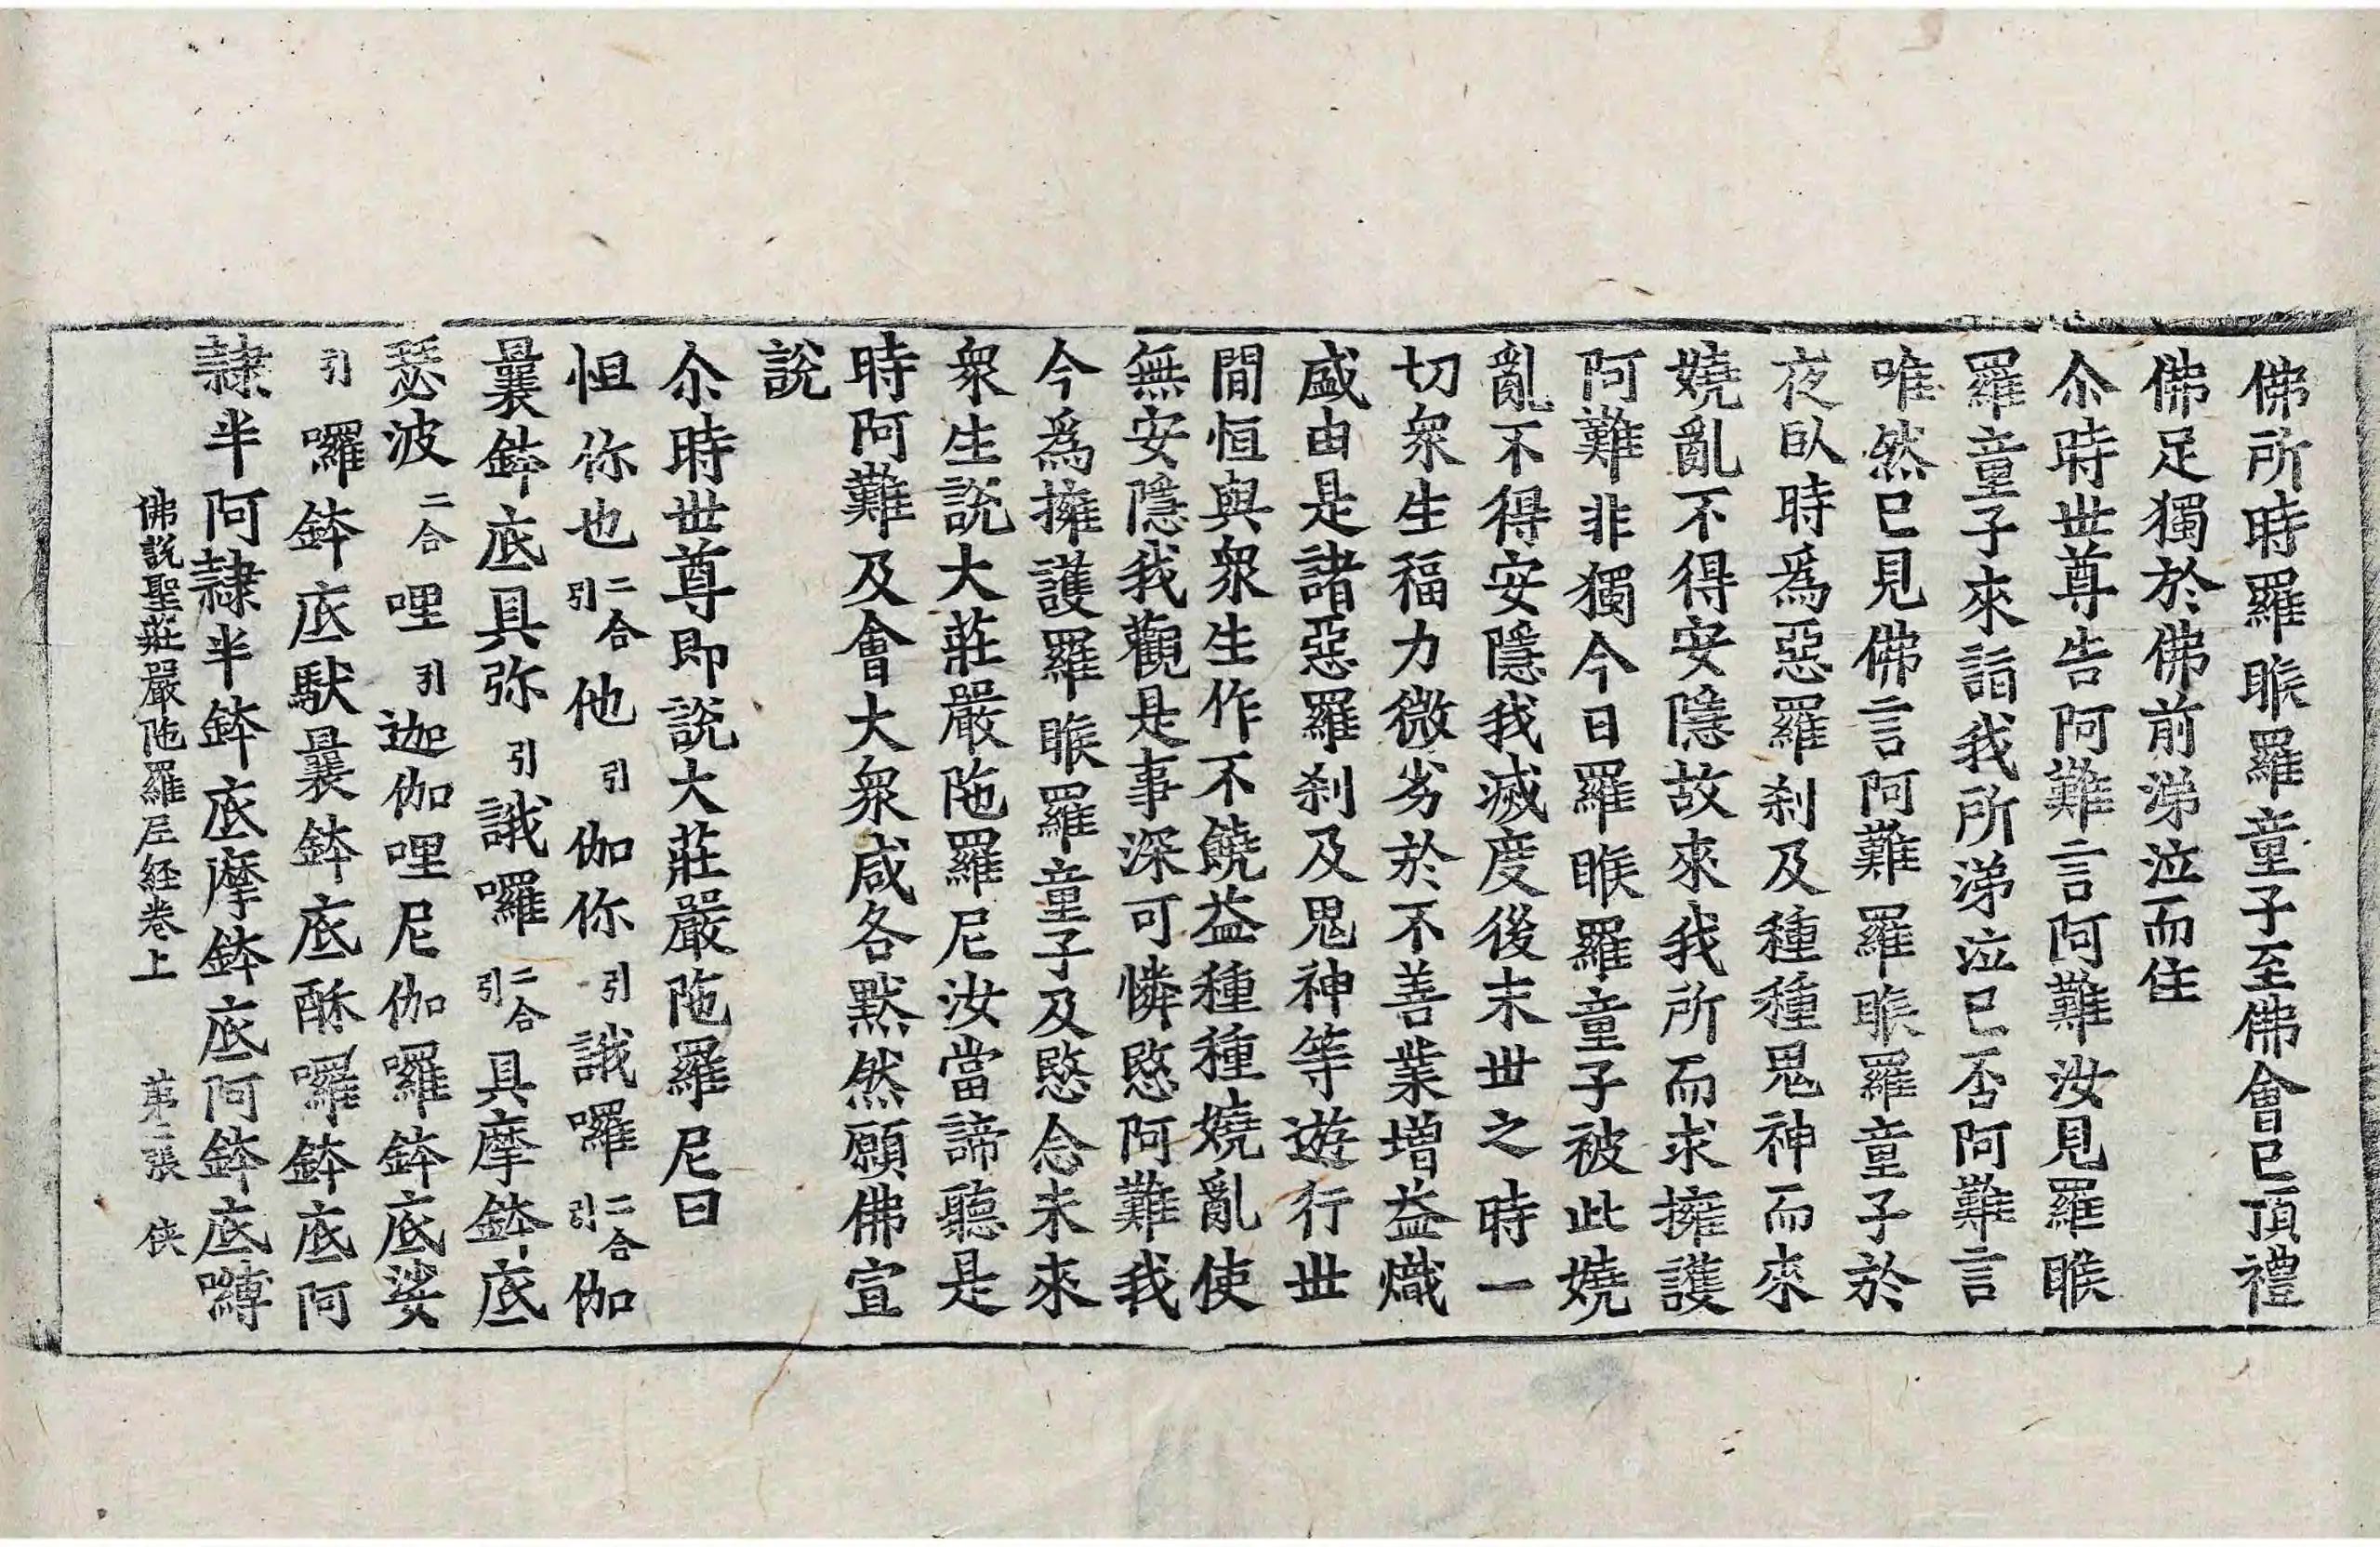 佛所時羅睺羅童子至佛會已頂禮
佛足獨於佛前涕泣而住
尒時世尊告阿難言阿難汝見羅睺
羅童子來詣我所涕泣已否阿難言
唯然已見佛言阿難羅睺羅童子於
夜臥時爲惡羅刹及種種鬼神而來
嬈亂不得安隱故來我所而求擁護
阿難非獨今日羅睺羅童子被此嬈
亂不得安隱我滅度後末世之時一
切衆生福力微劣於不善業增益熾
盛由是諸惡羅刹及鬼神等遊行世
間恒與衆生作不饒益種種嬈亂使
無安隱我觀是事深可憐愍阿難我
今爲擁護羅睺羅童子及愍念未來
衆生說大莊嚴陁羅尼汝當諦聽是
時阿難及會大衆咸各默然願佛宣
說
尒時世尊即說大莊嚴陁羅尼曰
怛你也二合引他引伽你引誐囉二合引伽
曩鉢底具弥引誐囉二合引具摩鉢底
瑟波二合哩引迦伽哩尼伽囉鉢底娑
引囉鉢底馱曩鉢底酥囉鉢底阿
隷半阿隷半鉢底摩鉢底阿鉢底嚩
佛說聖莊嚴陁羅尼経卷上 第二張 俠